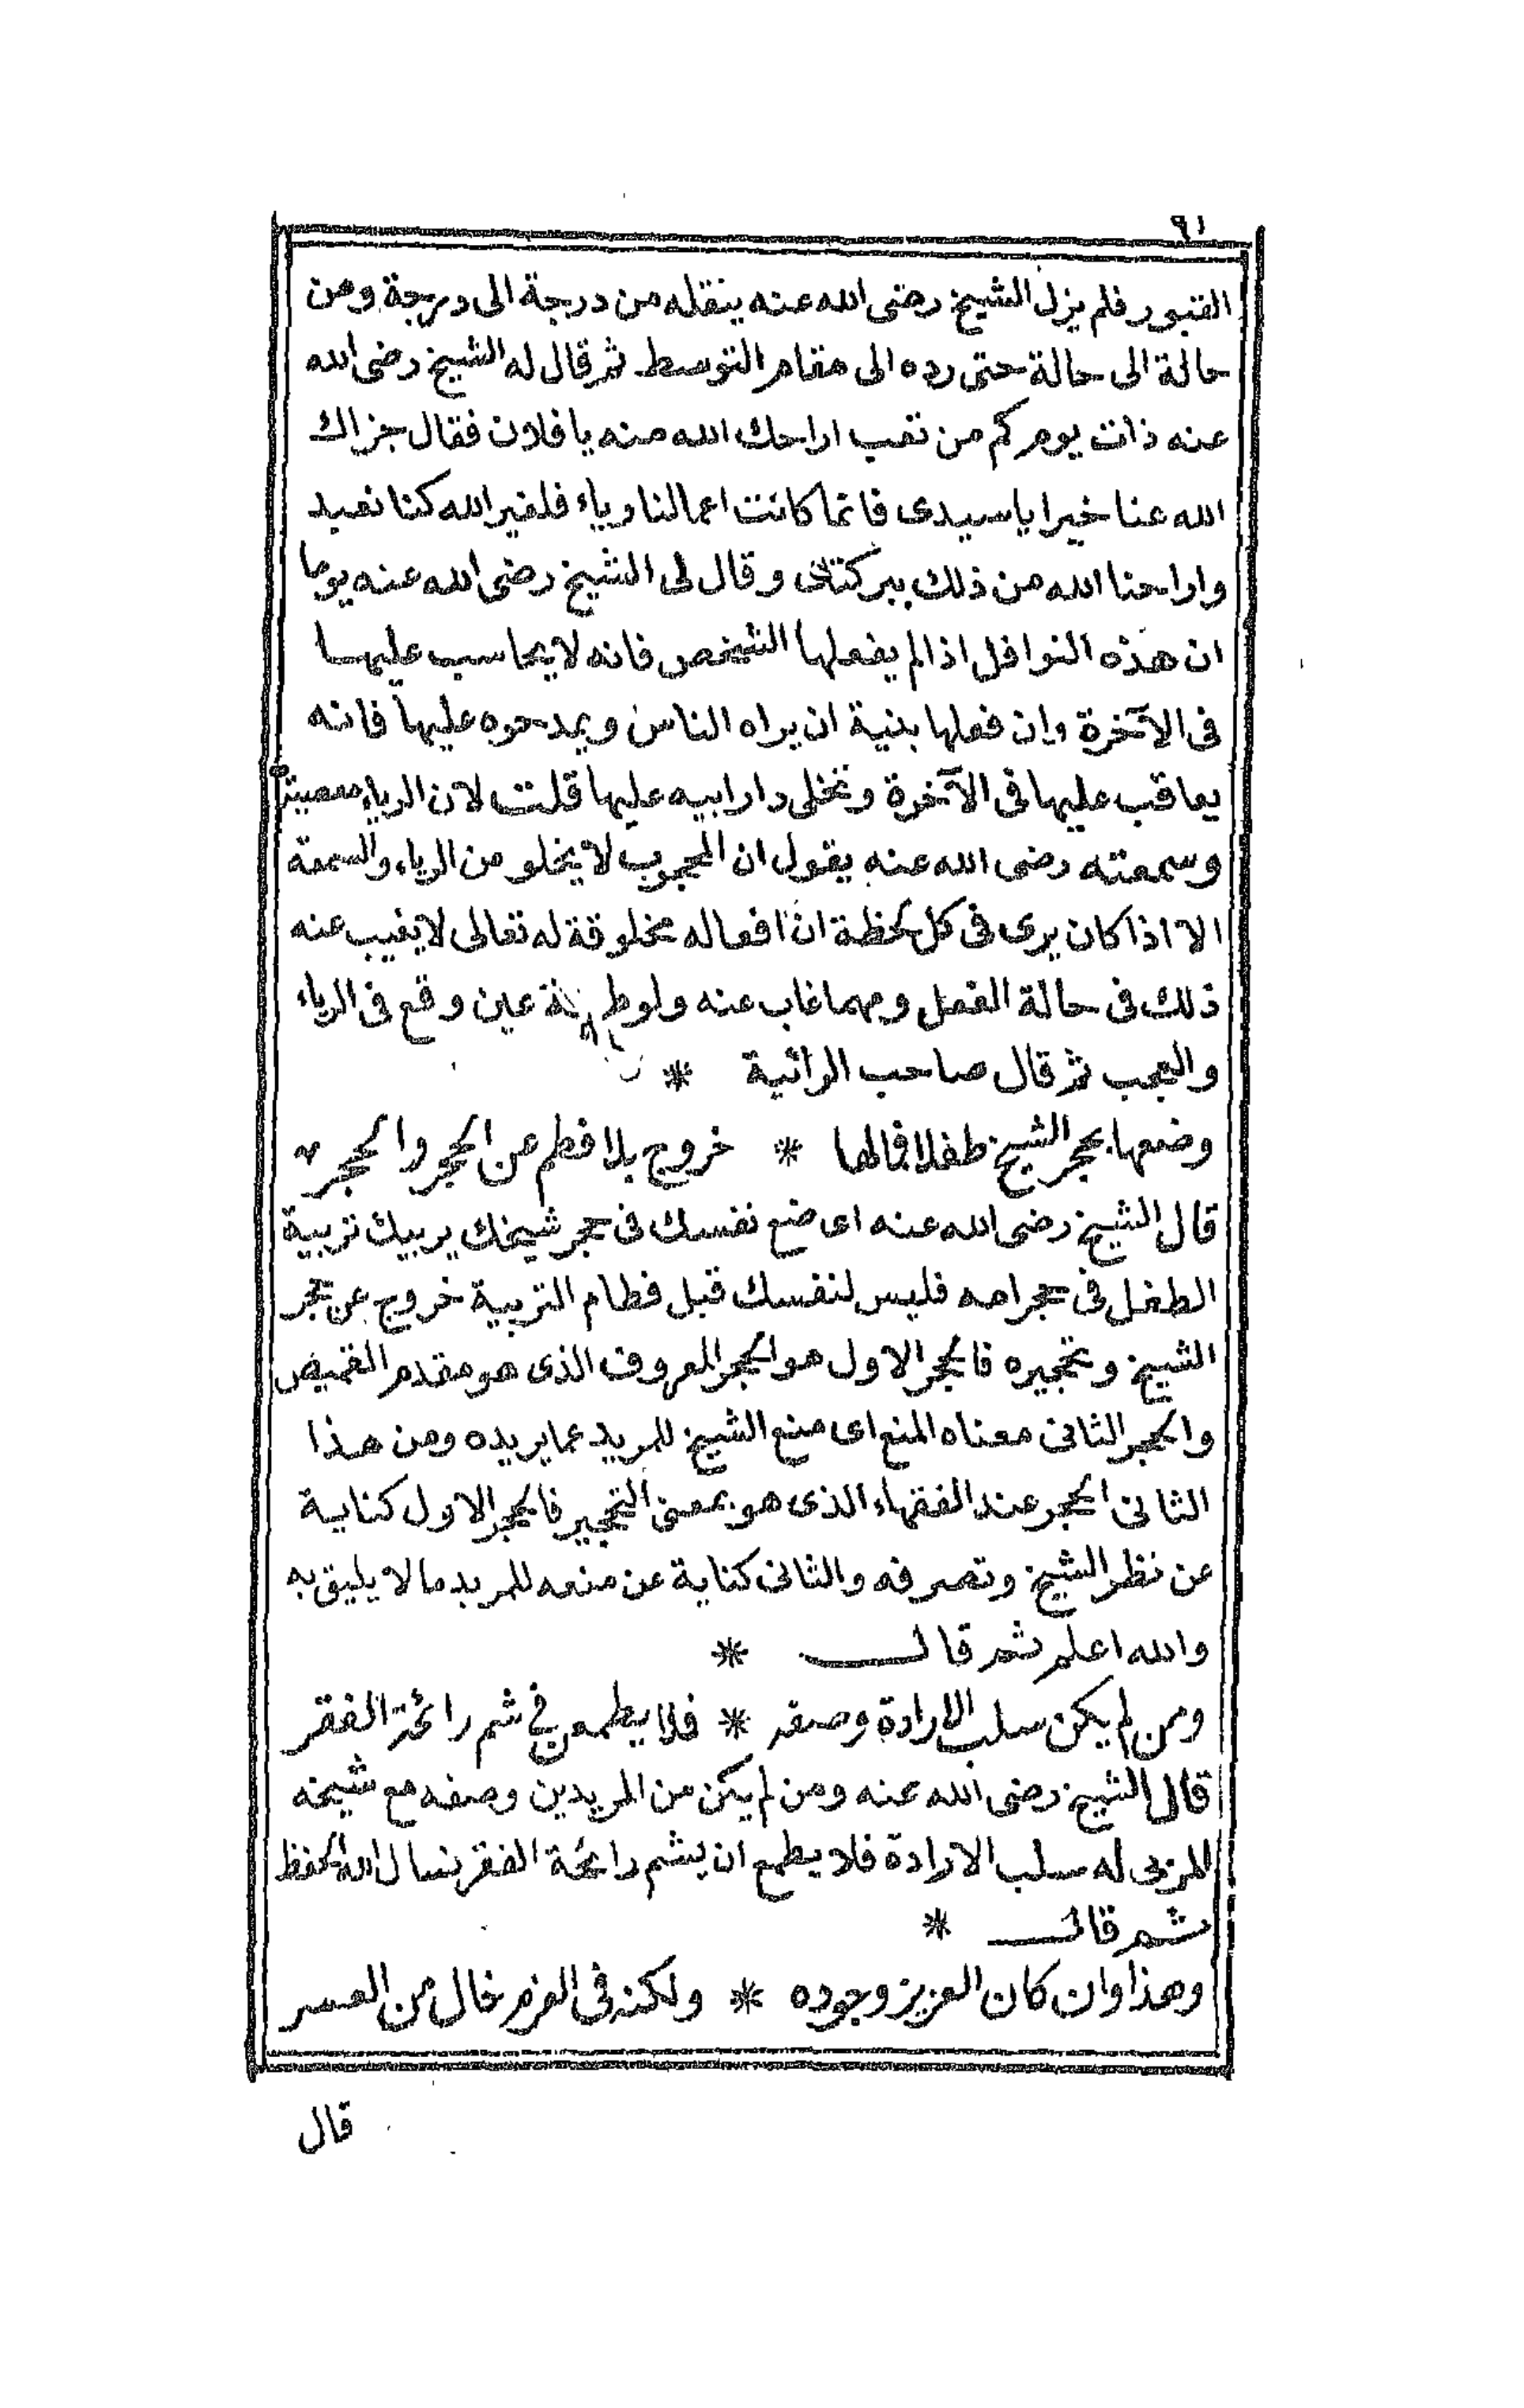 القبور فلم يزل الشيخ رضى الله عنه ينقله من درجة الى درجة ومن
حالة الى حالة حتى رده الى مقام التوسط ثم قال له الشيخ رضى الله
عنه ذات يوم كم من تعب اراحك الله منه يا فلان فقال جزاك
الله عنا خيرا يا سيدى فانما كانت اعمالنا رياء فلغير الله كنا نعبد
واراحنا الله من ذلك ببركتك وقال لى الشيخ رضى الله عنه يوما
ان هذه النوافل اذا لم يفعلها الشخص فانه لا يحاسب عليها
فى الآخرة وان فعلها بنية ان يراه الناس ويمدحوه عليها فانه
يعاقب عليها فى الآخرة وتخلى دار ابيه عليها قلت لان الرياء معصية
وسمعته رضى الله عنه يقول ان المحجوب لا يخلو من الرياء والسمعة
الا اذا كان يرى فى كل لحظة ان افعاله مخلوقة له تعالى لا يغيب عنه
ذلك فى حالة الفعل ومهما غاب عنه ولو طرفة عين وقع فى الرياء
والعجب ثم قال صاحب الرائية *
وضعها بحجر الشيخ طفلا فمالها * خروج بلا فطم عن الحجر والحجر
قال الشيخ رضى الله عنه اى ضع نفسك فى حجر شيخك يربيك تربية
الطفل فى حجر امه فليس لنفسك قبل فطام التربية خروج عن حجر
الشيخ وتحجيره فالحجر الاول هو الحجر المعروف الذى هو مقدم القميص
والحجر الثانى معناه المنع اى منع الشيخ للمريد عما يريده ومن هذا
الثانى الحجر عند الفقهاء الذى هو بمعنى التحجير فالحجر الاول كناية
عن نظر الشيخ وتصرفه والثانى كناية عن منعه للمريد ما لا يليق به
والله اعلم ثم قال *
ومن لم يكن سلب الارادة وصفه * فلا يطمعن في شم رائحة الفقر
قال الشيخ رضى الله عنه ومن لم يكن من المريدين وصفه مع شيخه
المربى له سلب الارادة فلا يطمع ان يشم رائحة الفقر نسال الله الحفظ
ثم قال *
وهذا وان كان العزيز وجوده * ولكنه فى العزم خال من العسر
قال